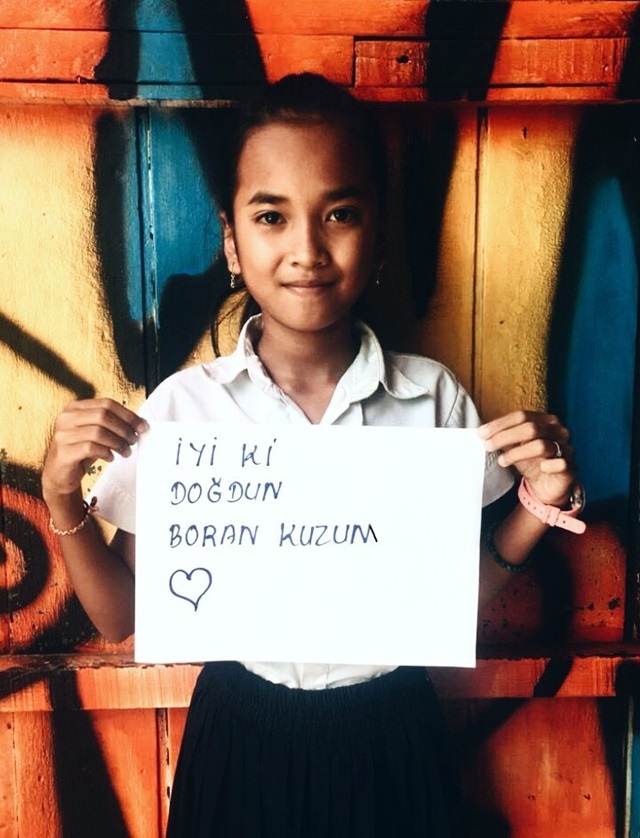 İYİ Kİ
DOĞDUN
BORAN KUZUM